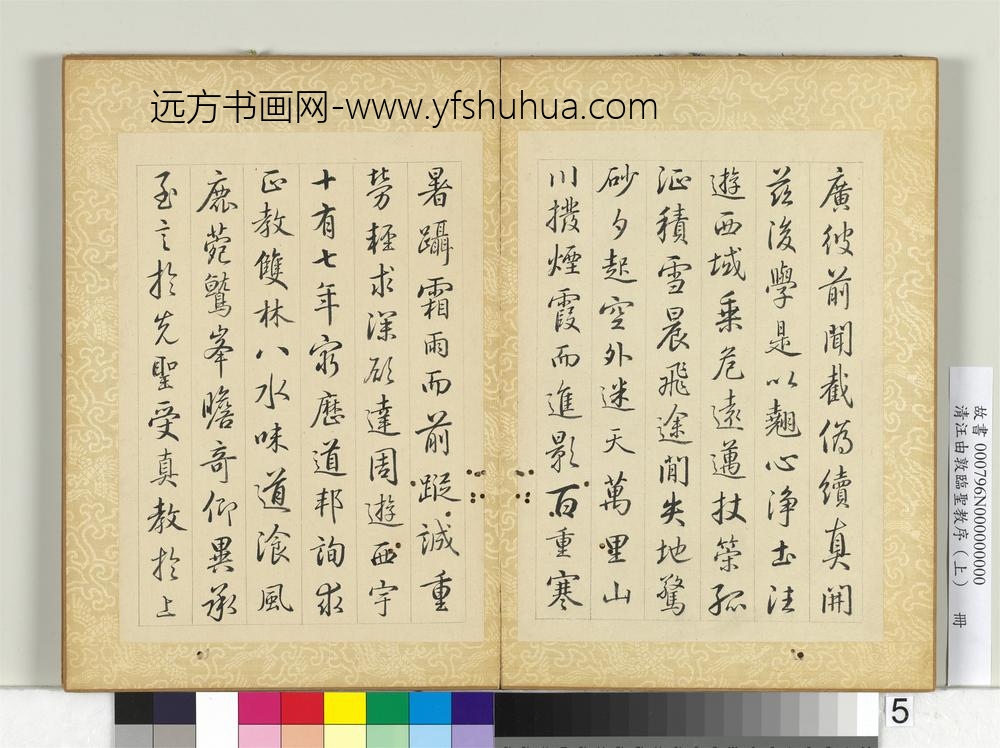 远方书画网-www.yfshuhua.com
廣彼前聞截偽續真開
茲後學是以翹心淨土法
遊西域乘危遠邁杖策孤
征積雪晨飛途閒失地驚
砂夕起空外迷天萬里山
川撥煙霞而進影百重寒
暑躡霜雨而前蹤誠重
勞輕求深欲達周遊西宇
十有七年窮歷道邦詢求
正教雙林八水味道湌風
鹿菀鷲峯瞻奇仰異承
至言於先聖受真教於上
故書000796N000000000
清汪由敦臨聖教序（上） 冊
5